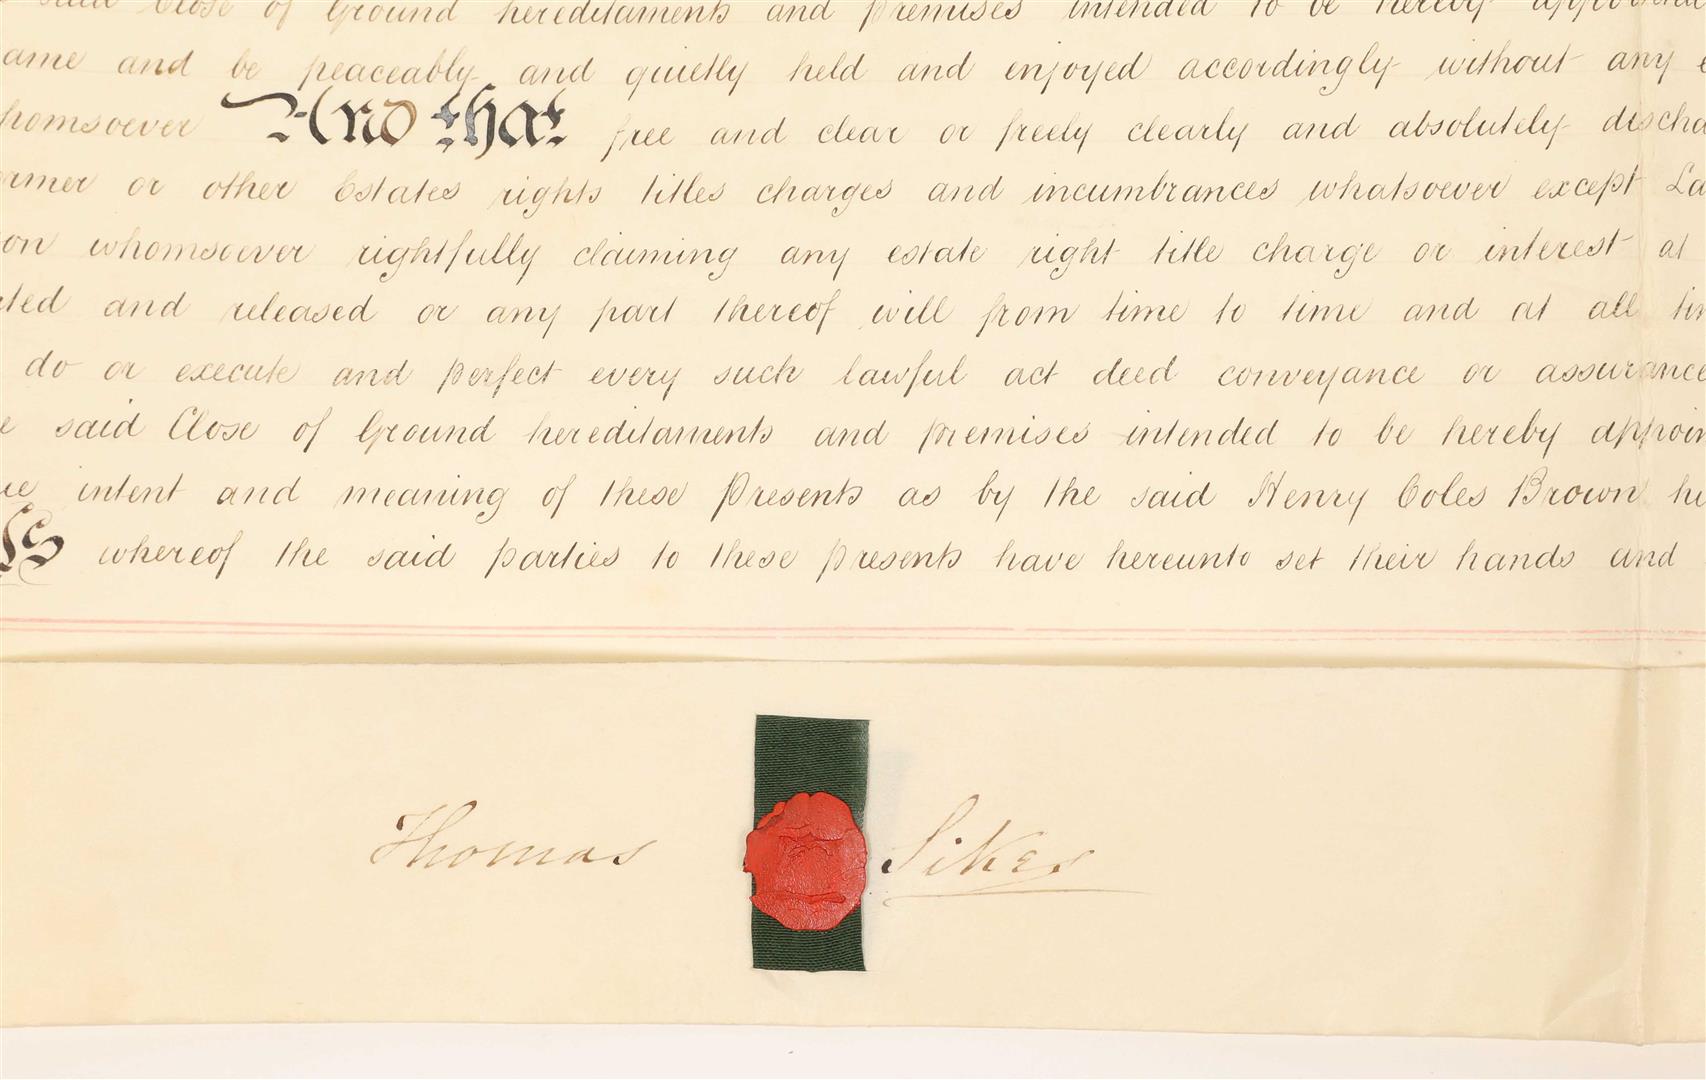 said Close of Ground hereditaments and premises intended to be hereby
ame and be peaceably and quietly held and enjoyed accordingly without any
homsoever And that free and clear or freely clearly and absolutely discha
ormer or other Estates rights titles charges and incumbrances whatsoever except La
on whomsoever rightfully claiming any estate right title charge or interest at
ted and released or any part thereof will from time to time and at all tim
do or execute and perfect every such lawful act deed conveyance or assurance
e said Close of Ground hereditaments and premises intended to be hereby appoin
ue intent and meaning of these Presents as by the said Henry Coles Brown hi
ss whereof the said parties to these presents have hereunto set their hands and
Thomas Sikes